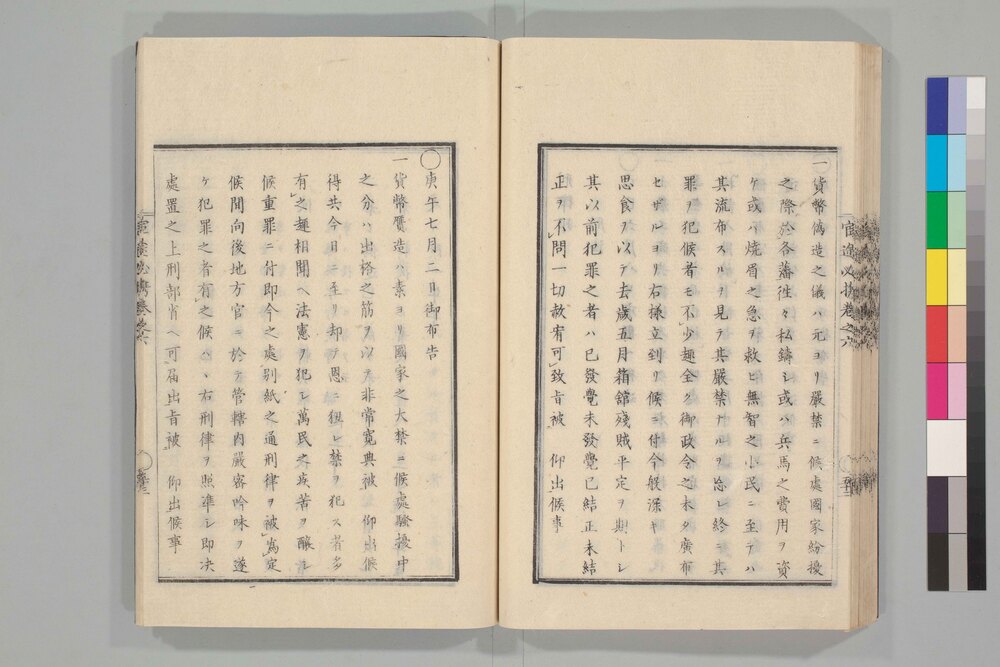 一貨幣偽造之儀ハ元ヨリ嚴禁ニ候處國家紛擾
之際於各藩徃々私鑄シ或ハ兵馬之費用ヲ資
ケ或ハ焼眉之急ヲ救ヒ無智之小民ニ至テハ
其流布スルヲ見テ其嚴禁ナルヲ忘レ終ニ其
罪ヲ犯候者モ不少趣全ク御政令之未タ廣布
セサルヨリ右様立到リ候ニ付今般深キ
思食ヲ以テ去歳五月箱舘殘賊平定ヲ期トシ
其以前犯罪之者ハ已發覺未發覺已結正未結
正ヲ不問一切赦宥可致旨被 仰出候事
○庚午七月二日御布告
一貨幣贋造ハ素ヨリ國家之大禁ニ候處騒擾中
之分ハ出格之筋ヲ以テ非常寛典被 仰出候
得共今日ニ至リ却テ恩ニ狃レ禁ヲ犯ス者多
有之趣相聞ヘ法憲ヲ犯シ萬民之疾苦ヲ醸シ
候重罪ニ付即今之處別紙之通刑律ヲ被為定
候間向後地方官ニ於テ管轄内嚴密吟味ヲ遂
ケ犯罪之者有之候ハヽ右刑律ヲ照準シ即决
處置之上刑部省ヘ可届出旨被 仰出候事